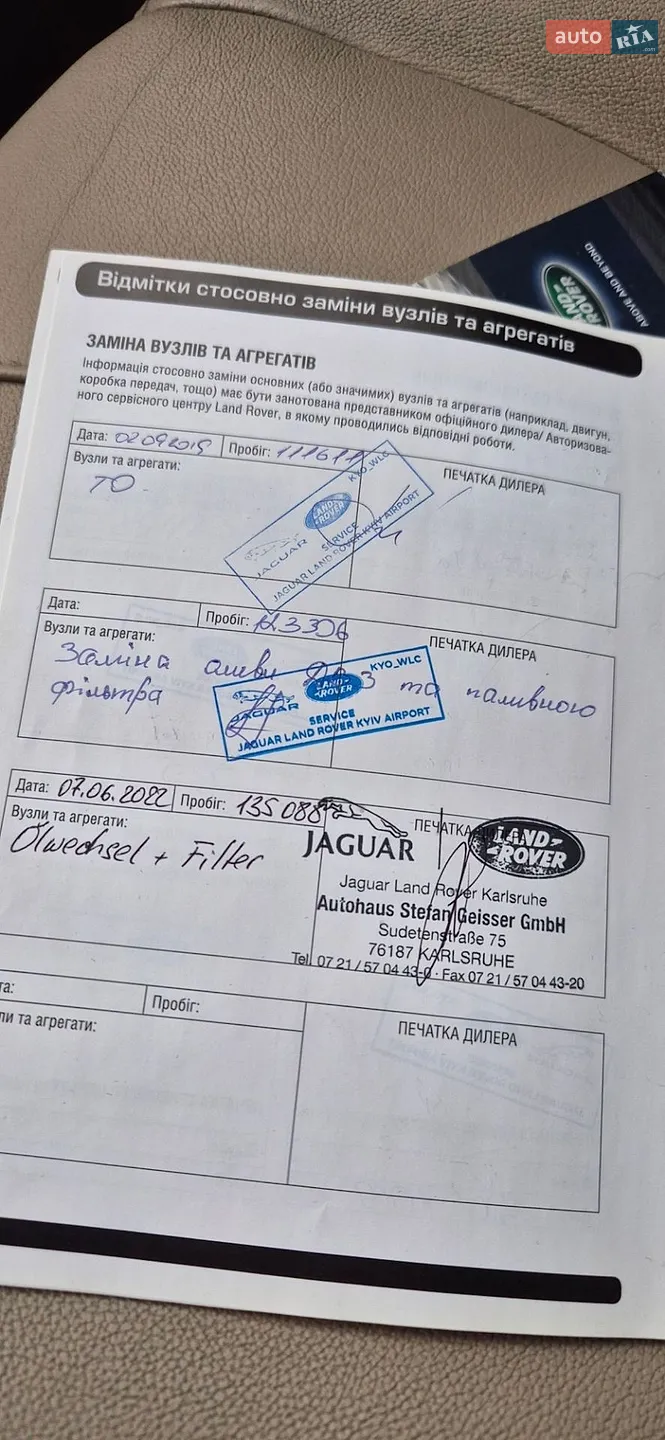 auto RIA .com
ABOVE AND BEYOND
LAND ROVER
Відмітки стосовно заміни вузлів та агрегатів
ЗАМІНА ВУЗЛІВ ТА АГРЕГАТІВ
Інформація стосовно заміни основних (або значимих) вузлів та агрегатів (наприклад, двигун,
коробка передач, тощо) має бути занотована представником офіційного дилера/ Авторизова-
ного сервісного центру Land Rover, в якому проводились відповідні роботи.
Дата: 02092019 Пробіг: 111611
Вузли та агрегати: ПЕЧАТКА ДИЛЕРА
ТО
KYO_WLC
JAGUAR LAND ROVER
SERVICE
JAGUAR LAND ROVER KYIV AIRPORT
Дата: Пробіг: 123306
Вузли та агрегати: ПЕЧАТКА ДИЛЕРА
Заміна оливи та паливного
фільтра
KYO_WLC
JAGUAR LAND ROVER
SERVICE
JAGUAR LAND ROVER KYIV AIRPORT
Дата: 07.06.2022 Пробіг: 135 088
Вузли та агрегати: ПЕЧАТКА
Ölwechsel + Filter
JAGUAR LAND ROVER
Jaguar Land Rover Karlsruhe
Autohaus Stefan Geisser GmbH
Sudetenstraße 75
76187 KARLSRUHE
Tel. 07 21 / 57 04 43-0 · Fax 07 21 / 57 04 43-20
та: Пробіг:
ли та агрегати: ПЕЧАТКА ДИЛЕРА